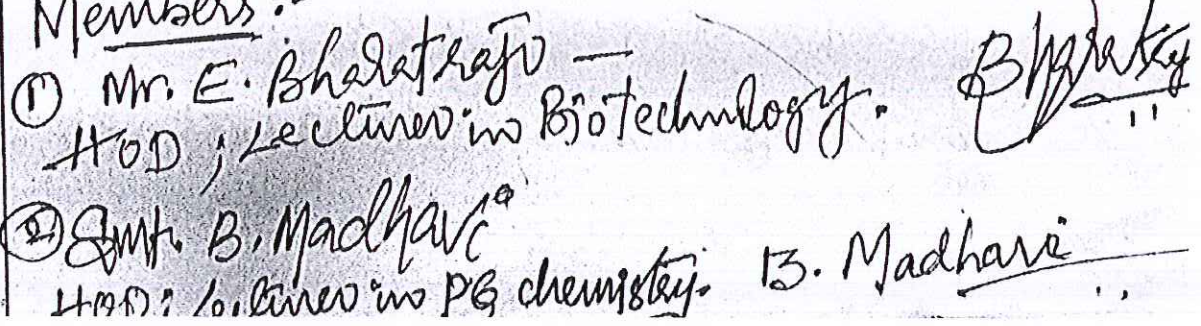 Members:-
① Mr. E. Bharatraju —
HOD ; Lecturer in Biotechnology.
② Smt. B. Madhavi
HOD; Lecturer in PG chemistry. B. Madhavi